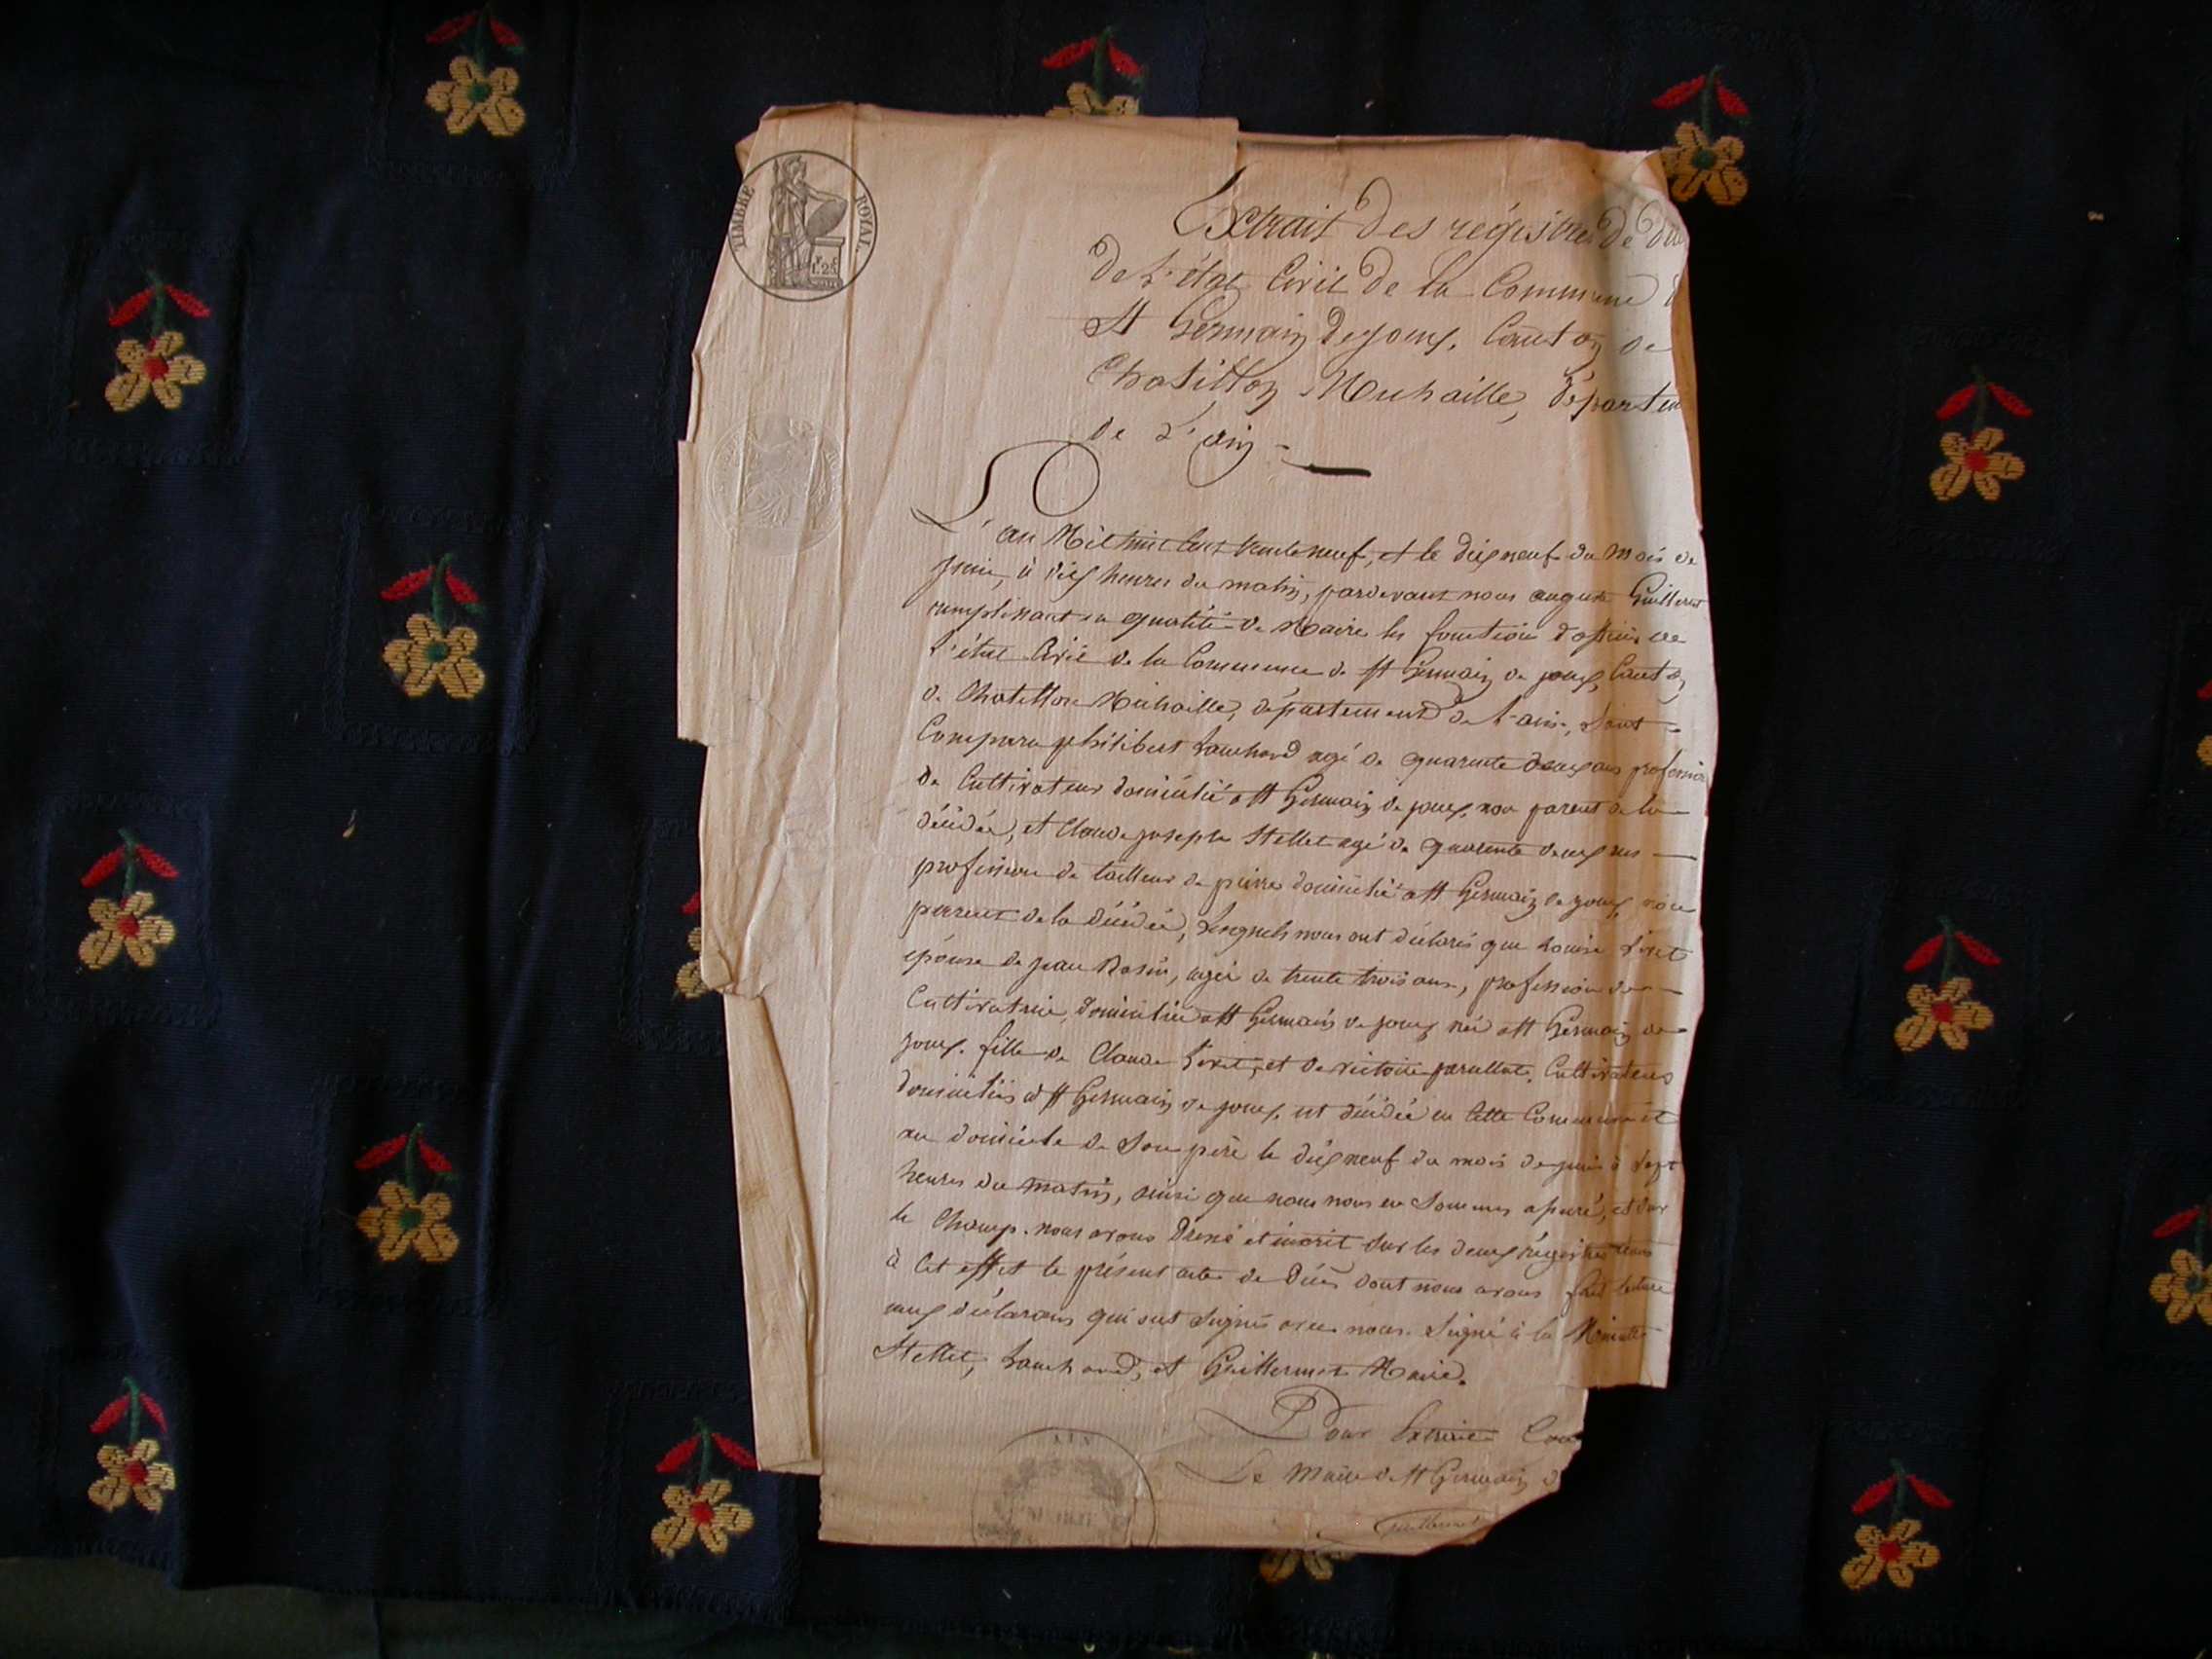 TIMBRE ROYAL
1.25
Extrait des régistres de
de l'état Civil de la Commune
St Germain de joux, Canton de
Chatillon Michaille, départem
de l'ain
L'an Mil huit Cent trente neuf, et le dix neuf du mois de
juin, à dix heures du matin, pardevant nous auguste Guillermet
remplissant en qualité de Maire les fonction d'officier de
l'état Civil de la Commune de St Germain de joux, Canton
de Chatillon Michaille, département de l'ain, Sont
Comparu philibert Tauchand agé de quarante deux ans profession
de Cultivateur domicilié a St Germain de joux, non parent de la
décédée, et Claude joseph Stellet agé de quarente deux ans
profession de tailleur de pierre domicilié a St Germain de joux, non
parent de la décédée, Lesquels nous ont déclarés que Louise
épouse de jean Rosin, agée de trente trois ans, profession de
Cultivatrice, domiciliée a St Germain de joux née a St Germain de
joux, fille de Claude et de victoire Cultivateurs
domiciliés a St Germain de joux, est décédée en Cette Commune et
au domicile de Son père le dix neuf du mois de juin à Sept
heures du matin, ainsi que nous nous en Sommes assuré, et Sur
le Champ nous avons Dressé et inscrit Sur les deux régistres tenus
à Cet effet le présent acte de Décès dont nous avons fait lecture
aux déclarans qui ont Signés avec nous. Signé à la Minutte
Stellet, Tauchand, et Guillermet Maire.
Pour Extrait Con
Le Maire de St Germain d
Guillermet
AIN